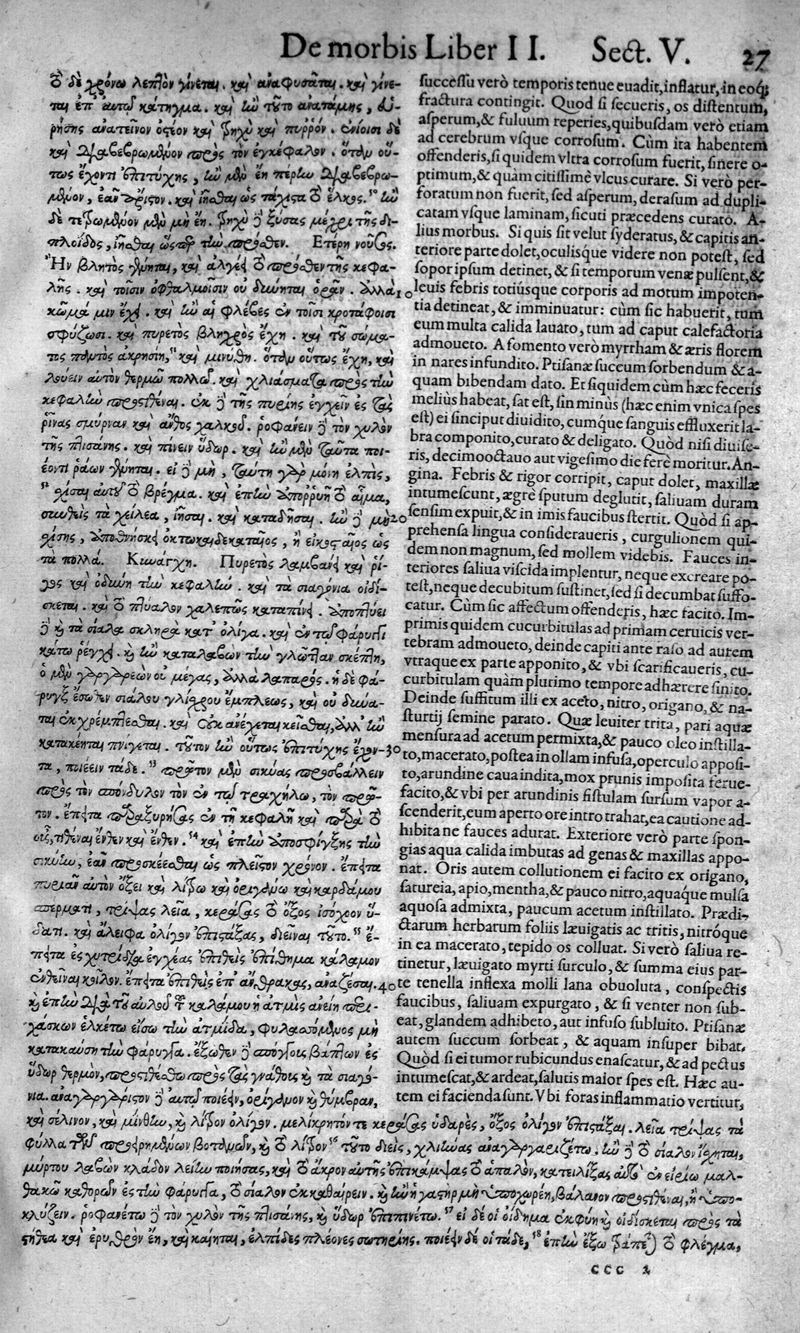 De morbis Liber II. Sect. V. 27
τὸ δὲ χρόνῳ λεπτὸν γίνεται. καὶ ἀναφυσᾶται. καὶ γίνε-
ται ἐπ' αὐτῷ κάτηγμα. καὶ ἢν τοῦτο ἀνατάμῃς, εὑ-
ρήσεις ἀνατεῖνον ὀστέον καὶ τρηχὺ καὶ πυρρόν. ἐνίοισι δὲ
καὶ διαβεβρωμένον πρὸς τὸν ἐγκέφαλον. ὅταν οὕ-
τως ἔχοντι ἐπιτύχῃς, ἢν μὲν ἔῃ πέρην διαβεβρω-
μένον, ἐᾶν ἄριστον. καὶ ἰῆσθαι ὡς τάχιστα τὸ ἕλκος. ἢν
δὲ τετρωμένον μὲν μὴ ἔῃ. τρηχὺ δὲ ξύσας μέχρι τῆς δι-
πλοΐδος, ἰῆσθαι ὥσπερ τὴν πρόσθεν. Ἑτέρη νοῦσος.
Ἢν βλητὸς γένηται, καὶ ἀλγέῃ τὸ πρόσθεν τῆς κεφα-
λῆς. καὶ τοῖσιν ὀφθαλμοῖσιν οὐ δύνηται ὁρᾷν. ἀλλὰ 10
κῶμά μιν ἔχῃ. καὶ ἢν αἱ φλέβες ἐν τοῖσι κροτάφοισι
σφύζωσι. καὶ πυρετὸς βληχρὸς ἔχῃ. καὶ τοῦ σώμα-
τος παντὸς ἀκρησίη, καὶ μινύθῃ. ὅταν οὕτως ἔχῃ, καὶ
λούειν αὐτὸν θερμῷ πολλῷ. καὶ χλιάσματα πρὸς τὴν
κεφαλὴν προστιθέναι. ἐκ δὲ τῆς πυρίης ἐγχεῖν ἐς τὰς
ῥῖνας σμύρναν καὶ ἄνθος χαλκοῦ. ῥοφάνειν δὲ τὸν χυλὸν
τῆς πτισάνης. καὶ πίνειν ὕδωρ. καὶ ἢν μὲν ταῦτα ποι-
έοντι ῥάων γένηται. εἰ δὲ μὴ, ταύτῃ γὰρ μόνη ἐλπὶς,
σχίσαι αὐτοῦ τὸ βρέγμα. καὶ ἐπὴν ἀποῤῥυῇ τὸ αἷμα,
συνθεὶς τὰ χείλεα, ἰῆσθαι. καὶ καταδῆσαι. ἢν δὲ μὴ 20
σχίσῃς, ἀποθνήσκει ὀκτωκαιδεκαταῖος, ἢ εἰκοσταῖος ὡς
τὰ πολλά. Κυνάγχη. Πυρετὸς λαμβάνει καὶ ῥῖ-
γος καὶ ὀδύνη τὴν κεφαλήν. καὶ τὰ σιαγόνια οἰδί-
σκεται. καὶ τὸ πτύαλον χαλεπῶς καταπίνει. ἀποπτύει
δὲ καὶ τὰ σίαλα σκληρὰ κατ' ὀλίγα. καὶ ἐν τῷ φάρυγγι
κάτω ῥέγχει. καὶ ἢν καταλαβὼν τὴν γλῶτταν σκέπτῃ,
ὁ μὲν γαργαρεὼν οὐ μέγας, ἀλλὰ λαπαρός. ἡ δὲ φά-
ρυγξ ἔσωθεν σιάλου γλίχρου ἔμπλεως, καὶ οὐ δύνα-
ται ἐκχρέμπτεσθαι. καὶ οὐκ ἀνέχεται κεῖσθαι, ἀλλ' ἢν
κατακέηται πνίγεται. τοῦτον ἢν οὕτως ἐπιτύχῃς ἔχον- 30
τα, ποιέειν τάδε. πρῶτον μὲν σικύας προσβάλλειν
πρὸς τὸν σπόνδυλον τὸν ἐν τῷ τραχήλῳ, τὸν πρῶ-
τον. ἔπειτα παραξυρήσας ἐν τῇ κεφαλῇ καὶ παρὰ τὸ
οὖς, τιθέναι ἔνθεν καὶ ἔνθεν. καὶ ἐπὴν ἀποσφίγξῃς τὴν
σικύην, ἐᾶν προσκεῖσθαι ὡς πλεῖστον χρόνον. ἔπειτα
πυριᾶν αὐτὸν ὄξει καὶ λίτρῳ καὶ ὀριγάνῳ καὶ καρδάμου
σπέρματι, τρίψας λεῖα, κεράσας τὸ ὄξος ἰσόχοον ὕ-
δατι. καὶ ἄλειφα ὀλίγον ἐπιστάξας, διεῖναι τοῦτο. ἔ-
πειτα ἐς χυτρίδα ἐγχέας ἐπιθεὶς ἐπίθημα κάλαμον
ἐνθεῖναι κοῖλον. ἔπειτα ἐπιθεὶς ἐπ' ἄνθρακας, ἀναζέσαι. 40
καὶ ἐπὴν διὰ τοῦ αὐλοῦ τοῦ καλάμου ἡ ἀτμὶς ἀνείη περι-
χάσκων ἑλκέτω εἴσω τὴν ἀτμίδα, φυλασσόμενος μὴ
κατακαύσῃ τὴν φάρυγγα. ἔξωθεν δὲ σπόγγους βάπτων ἐς
ὕδωρ θερμὸν, προστιθέσθω πρὸς τὰς γνάθους καὶ τὰ σιαγό-
νια. ἀναγαργάριστον δὲ αὐτῷ ποιέειν, ὀρίγανον καὶ θύμβραν,
successu verò temporis tenue euadit, inflatur, in eoq;
fractura contingit. Quod si secueris, os distentum,
asperum, & fuluum reperies, quibusdam verò etiam
ad cerebrum vsque corrosum. Cùm ita habentem
offenderis, si quidem vltra corrosum fuerit, sinere o-
ptimum, & quam citissimè vlcus curare. Si verò per-
foratum non fuerit, sed asperum, derasum ad dupli-
catam vsque laminam, sicuti præcedens curato. A-
lius morbus. Si quis sit velut syderatus, & capitis an-
teriore parte dolet, oculisque videre non potest, sed
sopor ipsum detinet, & si temporum venæ pulsent, &
leuis febris totiúsque corporis ad motum impoten-
tia detineat, & imminuatur: cùm sic habuerit, tum
eum multa calida lauato, tum ad caput calefactoria
admoueto. A fomento verò myrrham & æris florem
in nares infundito. Ptisanæ succum sorbendum & a-
quam bibendam dato. Et siquidem cùm hæc feceris
melius habeat, sat est, sin minùs (hæc enim vnica spes
est) ei sinciput diuidito, cumque sanguis effluxerit la-
bra componito, curato & deligato. Quòd nisi diuise-
ris, decimooctauo aut vigesimo die ferè moritur. An-
gina. Febris & rigor corripit, caput dolet, maxillæ
intumescunt, ægrè sputum deglutit, saliuam duram
sensim expuit, & in imis faucibus stertit. Quòd si ap-
prehensa lingua consideraueris, curgulionem qui-
dem non magnum, sed mollem videbis. Fauces in-
teriores saliua viscida implentur, neque excreare po-
test, neque decubitum sustinet, sed si decumbat suffo-
catur. Cùm sic affectum offenderis, hæc facito. Im-
primis quidem cucurbitulas ad primam ceruicis ver-
tebram admoueto, deinde capiti ante raso ad autem
vtraque ex parte apponito, & vbi scarificaueris, cu-
curbitulam quàm plurimo tempore adhærere sinito.
Deinde suffitum illi ex aceto, nitro, origano, & na-
sturtij semine parato. Quæ leuiter trita, pari aquæ
mensura ad acetum permixta, & pauco oleo instilla-
to, macerato, postea in ollam infusa, operculo apposi-
to, arundine caua indita, mox prunis imposita ferue-
facito, & vbi per arundinis fistulam sursum vapor a-
scenderit, eum aperto ore intro trahat, ea cautione ad-
hibita ne fauces adurat. Exteriore verò parte spon-
gias aqua calida imbutas ad genas & maxillas appo-
nat. Oris autem collutionem ei facito ex origano,
satureia, apio, mentha, & pauco nitro, aquaque mulsa
aquosa admixta, paucum acetum instillato. Prædi-
ctarum herbarum foliis læuigatis ac tritis, nitróque
in ea macerato, tepido os colluat. Si verò saliua re-
tinetur, læuigato myrti surculo, & summa eius par-
te tenella inflexa molli lana obuoluta, conspectis
faucibus, saliuam expurgato, & si venter non sub-
eat, glandem adhibeto, aut infuso subluito. Ptisanæ
autem succum sorbeat, & aquam insuper bibat.
Quòd si ei tumor rubicundus enascatur, & ad pectus
intumescat, & ardeat, salutis maior spes est. Hæc au-
tem ei facienda sunt. Vbi foras inflammatio vertitur,
καὶ σέλινον, καὶ μίνθην, καὶ λίτρον ὀλίγον. μελίκρητόν τε κεράσας ὑδαρὲς, ὄξος ὀλίγον ἐπιστάξαι. λεῖα τρίψας τὰ
φύλλα τῶν προειρημένων βοτανῶν, καὶ τὸ λίτρον τούτῳ διεὶς, χλιήνας ἀναγαργαριζέτω. ἢν δὲ τὸ σίαλον ἴσχηται,
μύρτου λαβὼν κλάδον λεῖον ποιήσας, καὶ τὸ ἄκρον αὐτῆς ἐπικάμψας τὸ ἁπαλὸν, κατειλίξας αὐτὸ ἐν εἰρίῳ μαλ-
θακῷ καθορῶν ἐς τὴν φάρυγγα, τὸ σίαλον ἐκκαθαίρειν. καὶ ἢν ἡ γαστὴρ μὴ ὑποχωρέῃ, βάλανον προστιθέναι, ἢ ὑπο-
κλύζειν. ῥοφανέτω δὲ τὸν χυλὸν τῆς πτισάνης, καὶ ὕδωρ ἐπιπινέτω. εἰ δὲ οἱ οἴδημα ἐκφύῃ καὶ οἰδίσκεται πρὸς τὰ
στήθεα καὶ ἐρυθρὸν ἔῃ, καὶ καίηται, ἐλπίδες πλέονες σωτηρίης. ποιέειν δέ οἱ τάδε, ἐπὴν ἔξω τράπῃ τὸ φλέγμα,
CCC 2